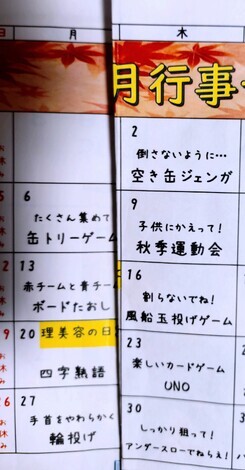 日
月
木
月行事
2
倒さないように…
空き缶ジェンガ
6
たくさん集めて
缶トリーゲーム
9
子供にかえって!
秋季運動会
13
赤チームと青チー
ボードたおし
16
割らないでね!
風船玉投げゲーム
20 理美容の日
四字熟語
23
楽しいカードゲーム
UNO
27
手首をやわらかく
輪投げ
30
しっかり狙って!
アンダースローでねらえ!